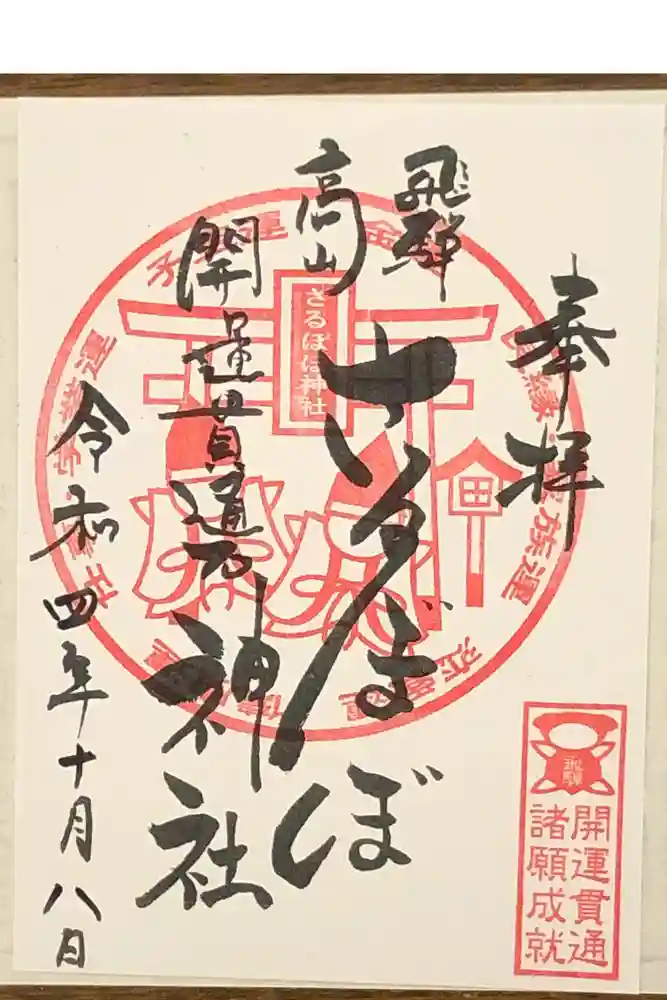 奉拝
飛騨
高山
さるぼぼ
開運貫通石
神社
令和四年十月八日
さるぼぼ神社
飛騨
開運貫通
諸願成就